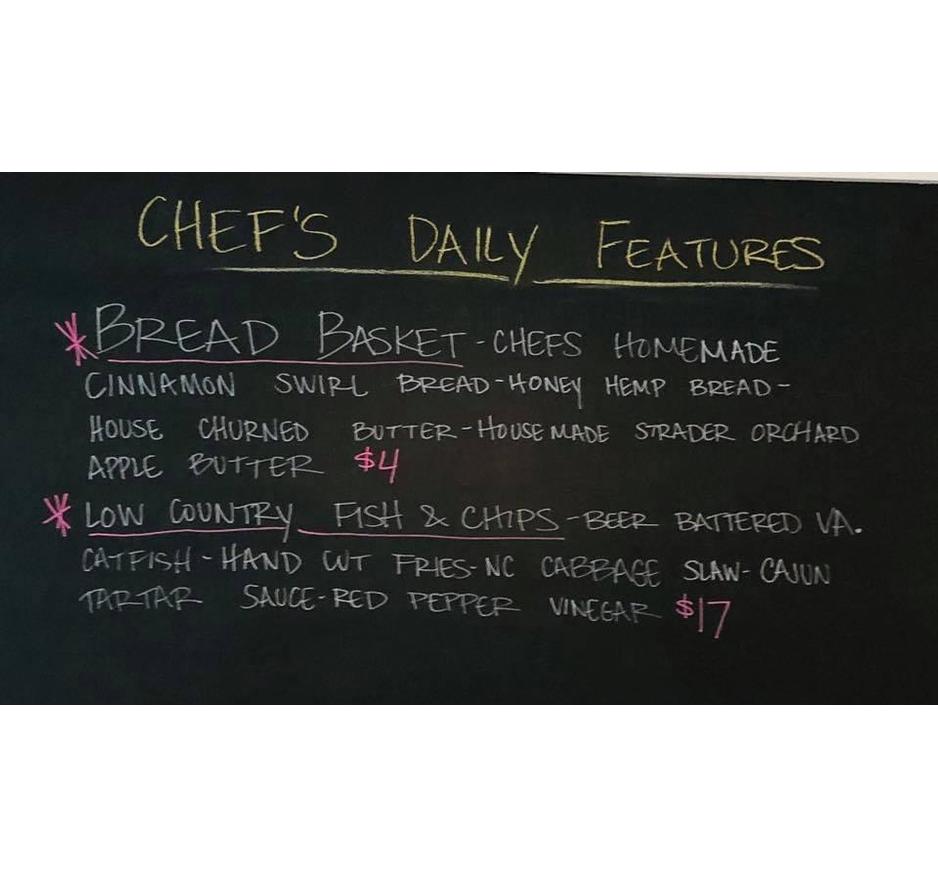 CHEF'S DAILY FEATURES
* BREAD BASKET - CHEFS HOMEMADE
CINNAMON SWIRL BREAD - HONEY HEMP BREAD -
HOUSE CHURNED BUTTER - HOUSEMADE STRADER ORCHARD
APPLE BUTTER $4
* LOW COUNTRY FISH & CHIPS - BEER BATTERED VA.
CATFISH - HAND CUT FRIES - NC CABBAGE SLAW - CAJUN
TARTAR SAUCE - RED PEPPER VINEGAR $17